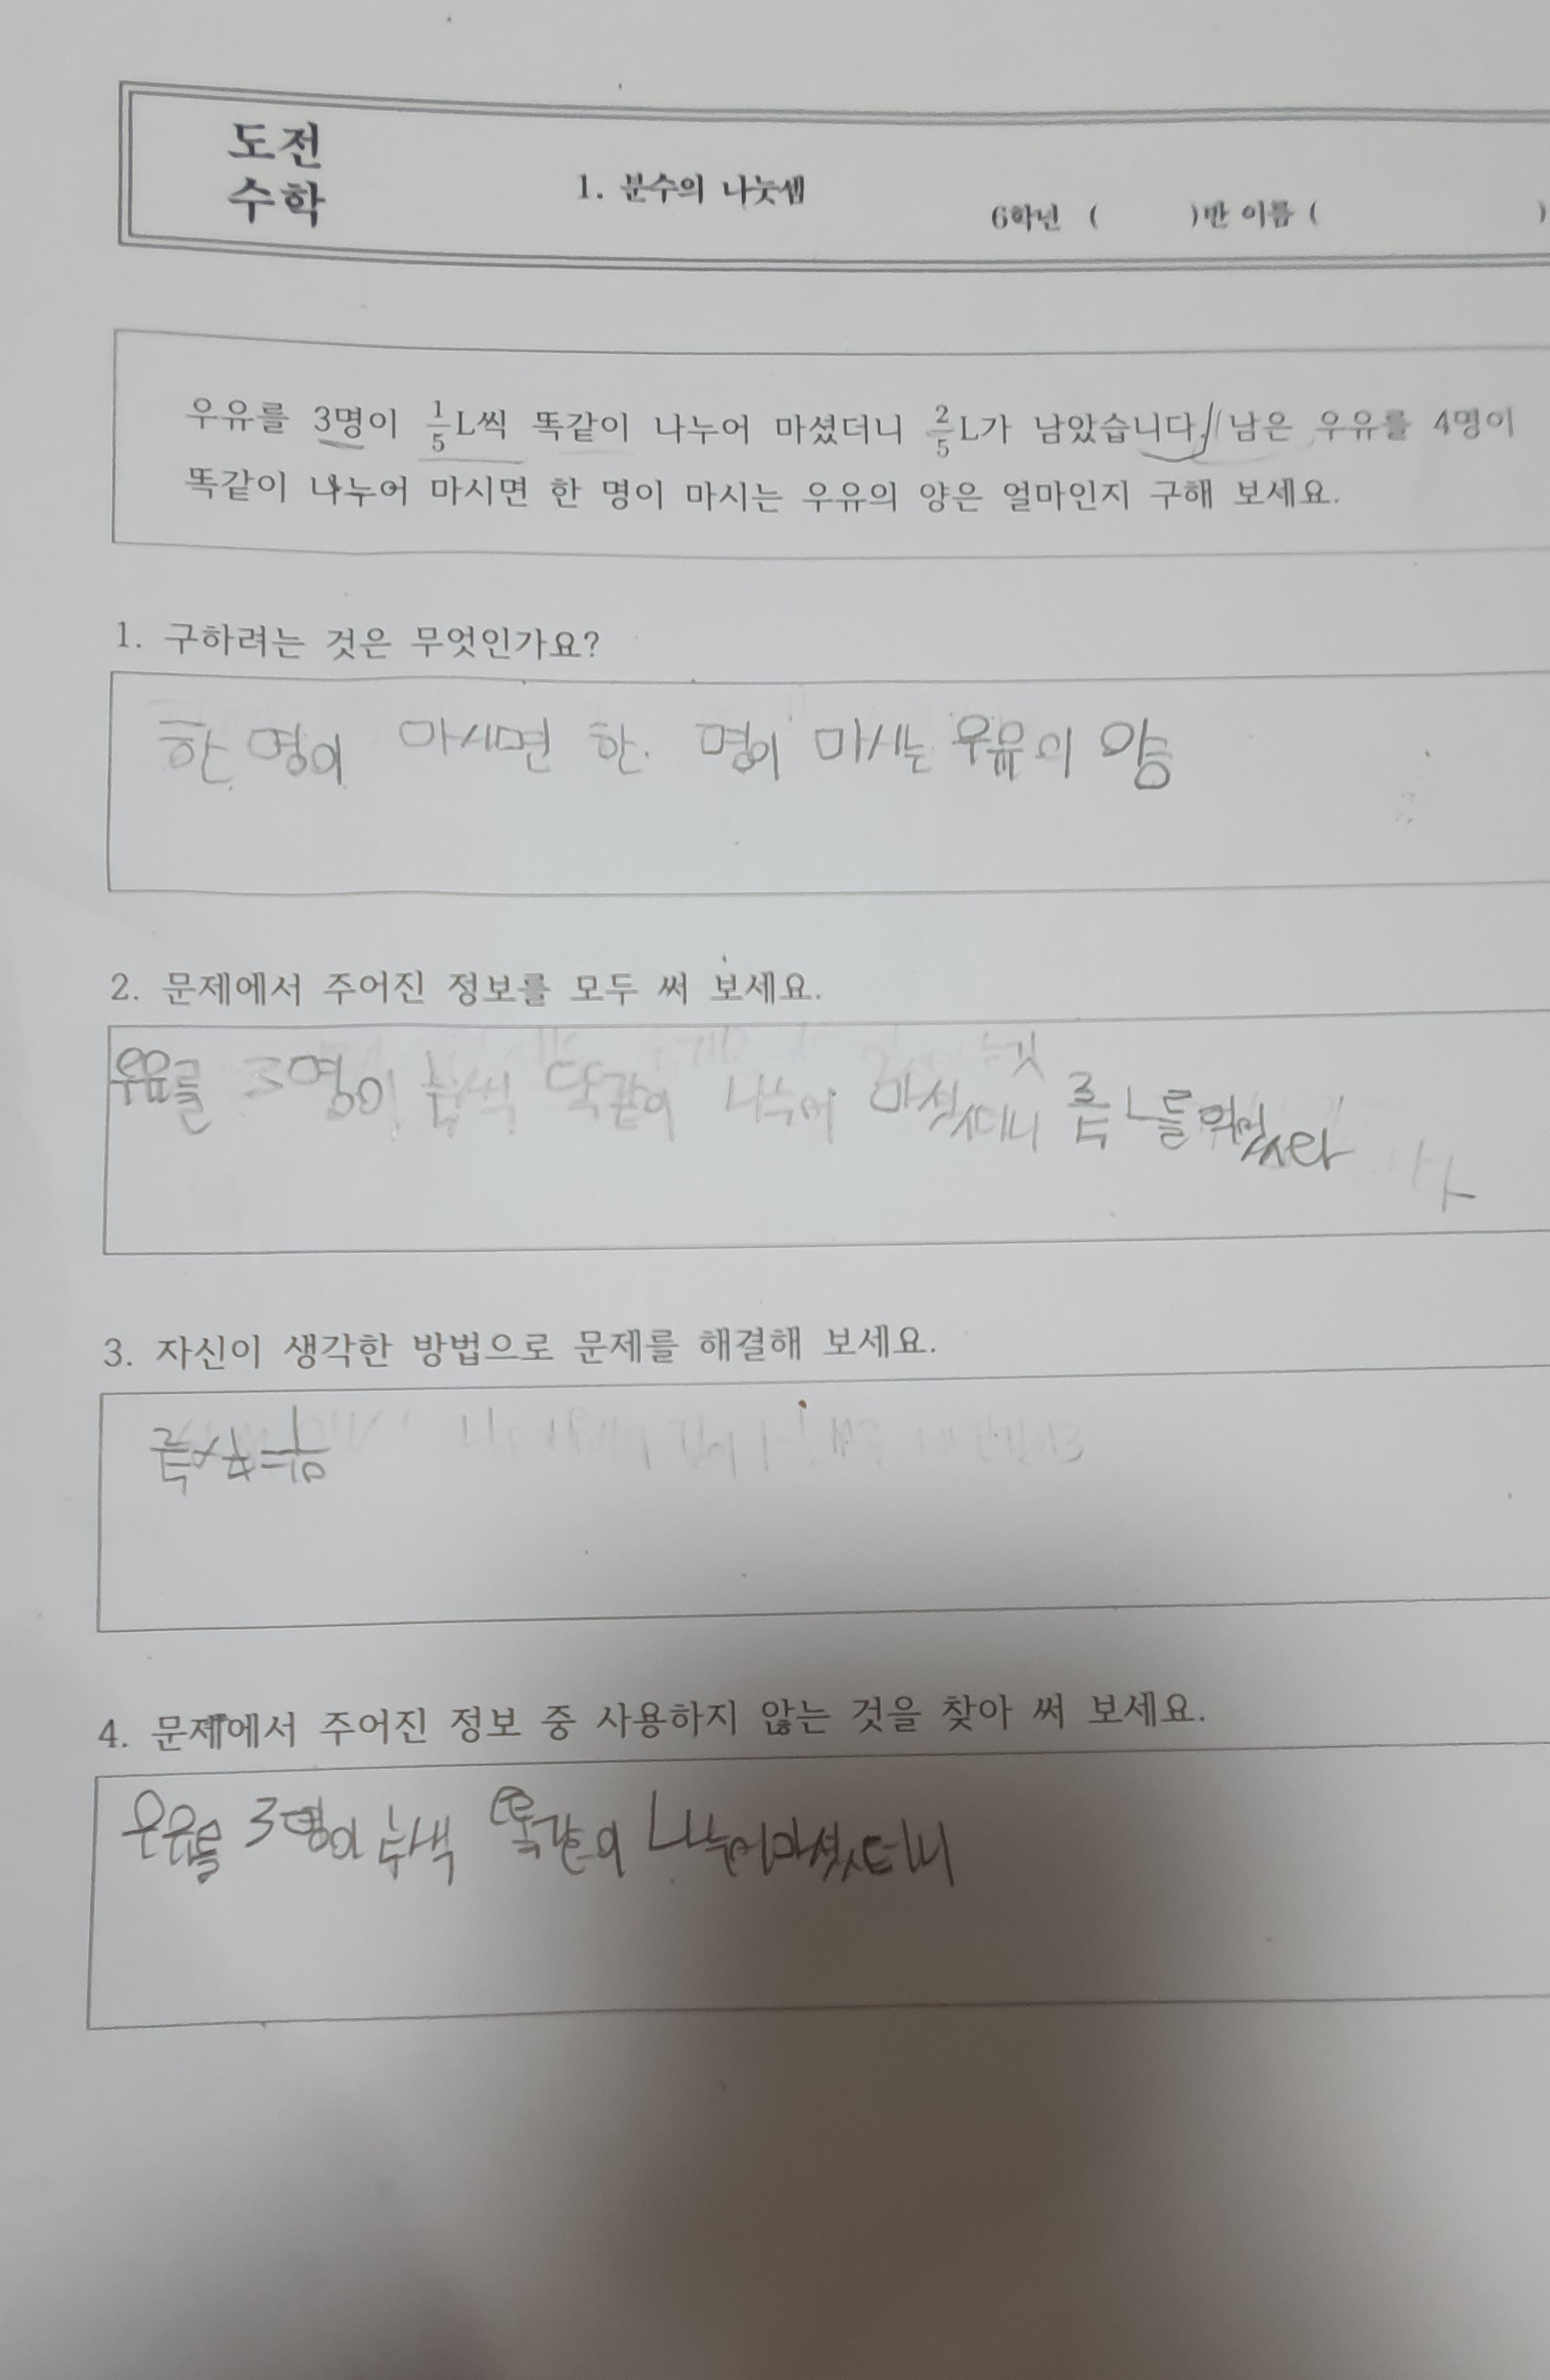 도전
수학
1. 분수의 나눗셈
6학년 ( )반 이름 ( )
우유를 3명이 1/5L씩 똑같이 나누어 마셨더니 2/5L가 남았습니다. 남은 우유를 4명이
똑같이 나누어 마시면 한 명이 마시는 우유의 양은 얼마인지 구해 보세요.
1. 구하려는 것은 무엇인가요?
한 명이 마시면 한 명이 마시는 우유의 양
2. 문제에서 주어진 정보를 모두 써 보세요.
우유를 3명이 1/5씩 똑같이 나누어 3/5 L를
3. 자신이 생각한 방법으로 문제를 해결해 보세요.
2/5×1/4=1/10
4. 문제에서 주어진 정보 중 사용하지 않는 것을 찾아 써 보세요.
우유를 3명이 1/5씩 똑같이 나누어마셨더니